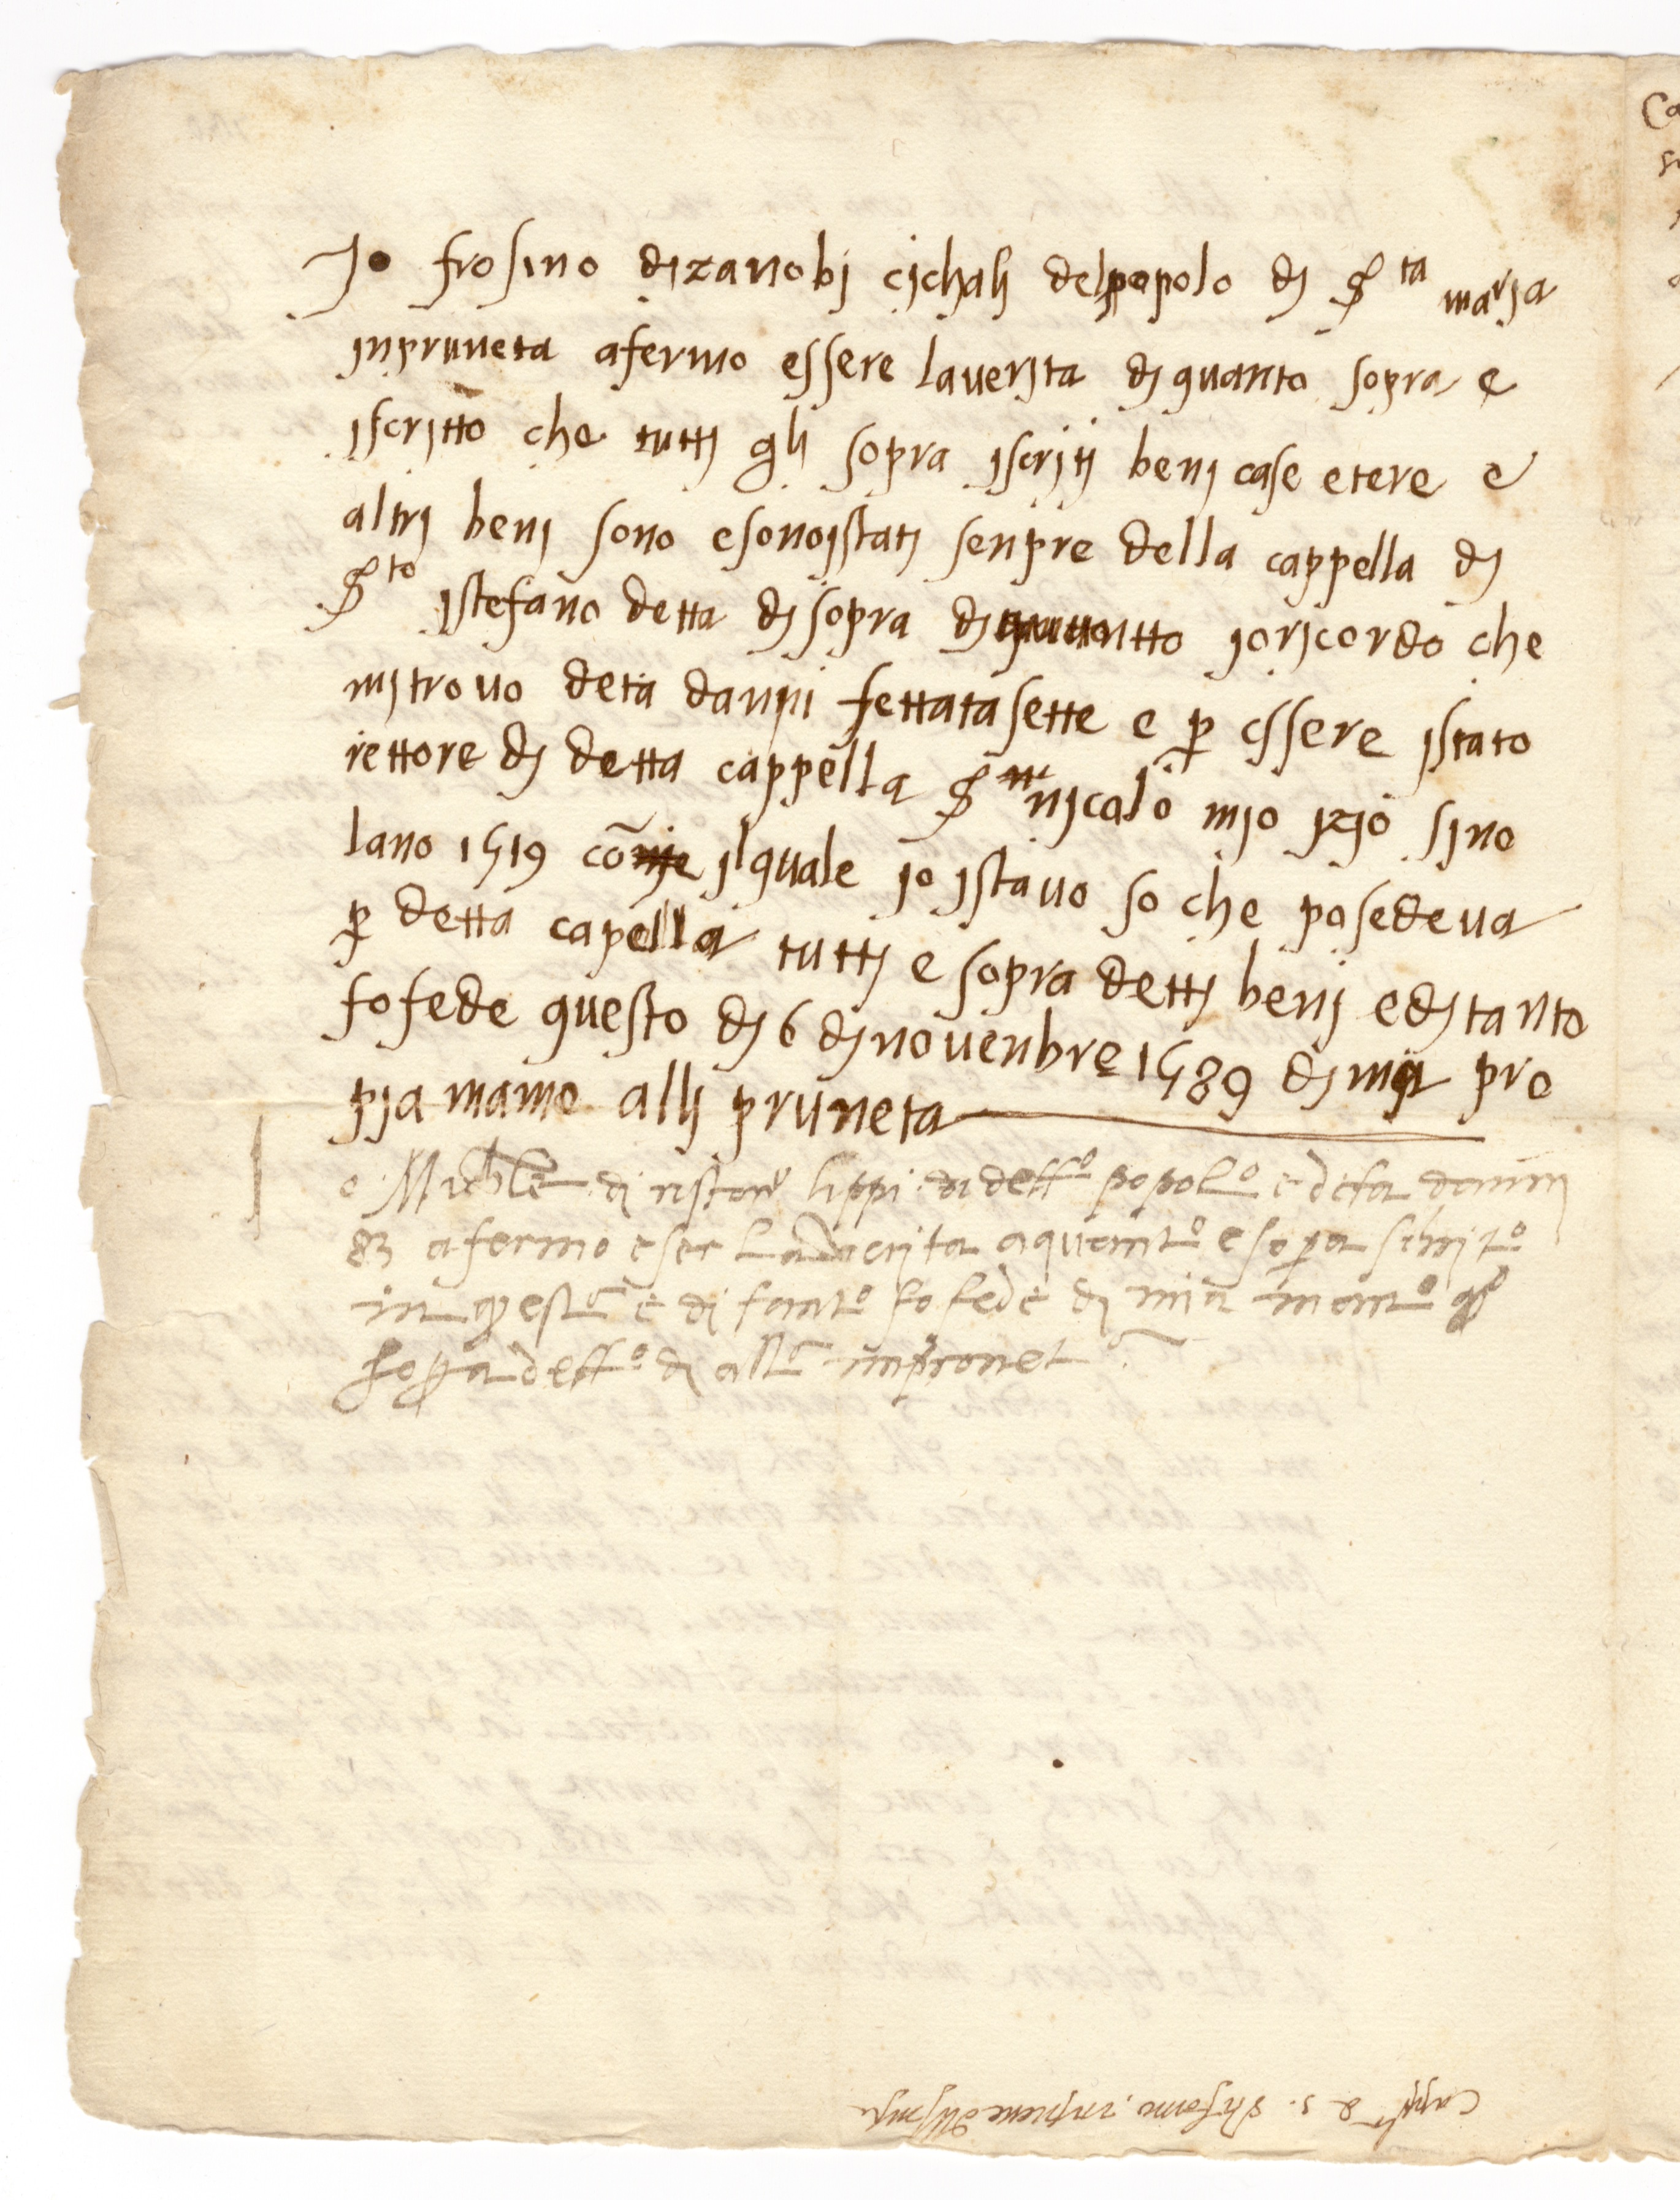 Jo frosino dizanobi cichali delpopolo di S.ta maria
inpruneta afermo essere lauerita di quanto sopra e
iscritto che tutti gli sopra iscriti beni case etere e
altri beni sono esonoistati senpre della cappella di
S.to istefano detta disopra di tutto ioricordo che
mitrovo deta danni settatasette e p essere istato
rettore di detta cappella S nicalo mio izio sino
lano 1519 cō ilquale io istavo so che posedeva
p detta capella tutti e sopra detti beni editanto
fofede questo di 6 dinovenbre 1589 dimia pro
pia mamo alli pruneta
o Michele di ristoro lippi di detto popolo e deta danni
83 afermo eser La verita aquanto e sopra schrito
in questo e di tanto fo fede di mia mano
sopra detto di alla inpronet
Capp.a d S. Stefano, in pieve dell'Imp.